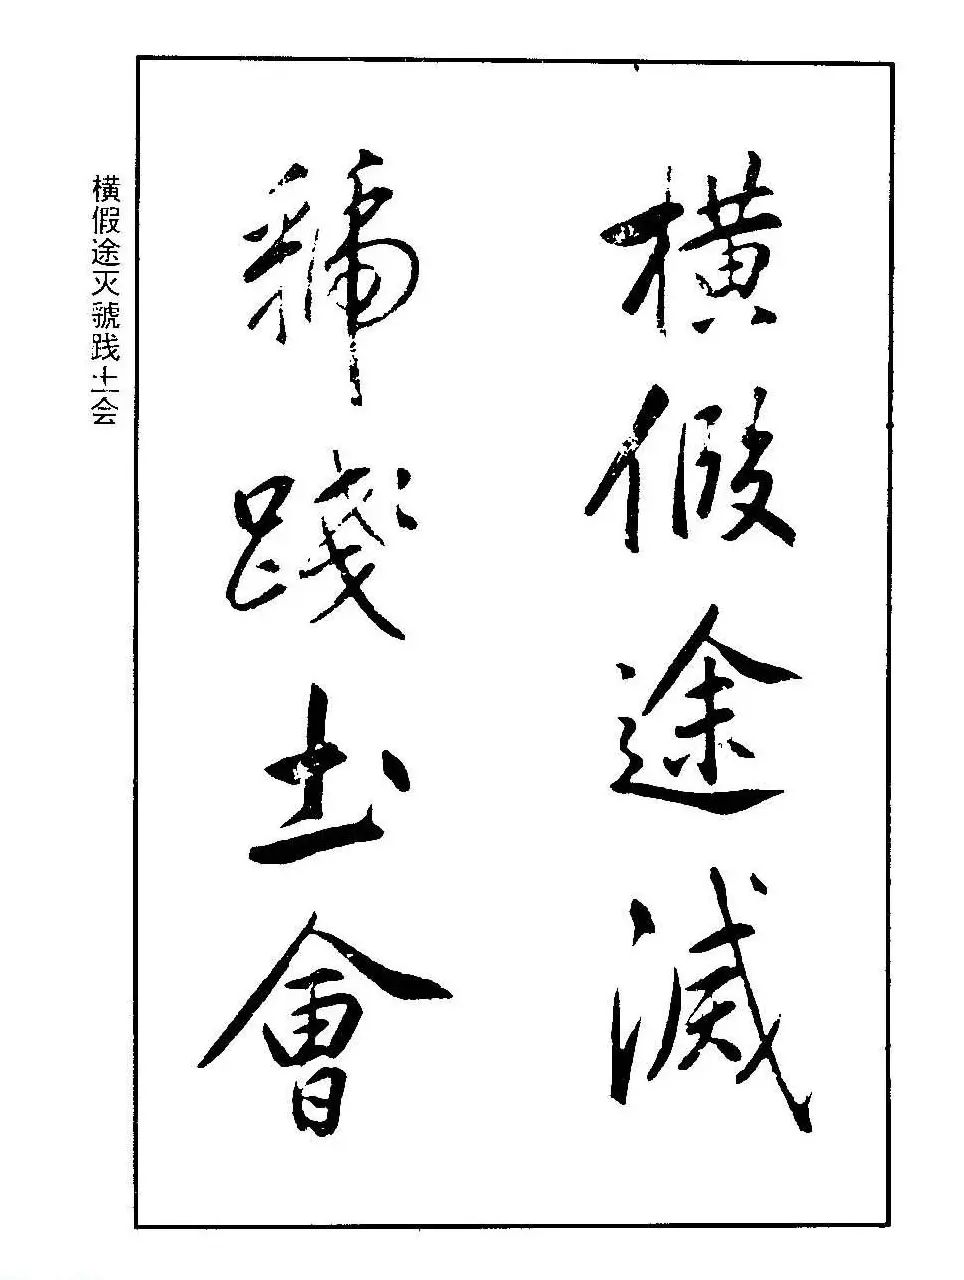 橫假途滅
虢踐土會
横假途灭虢践土会